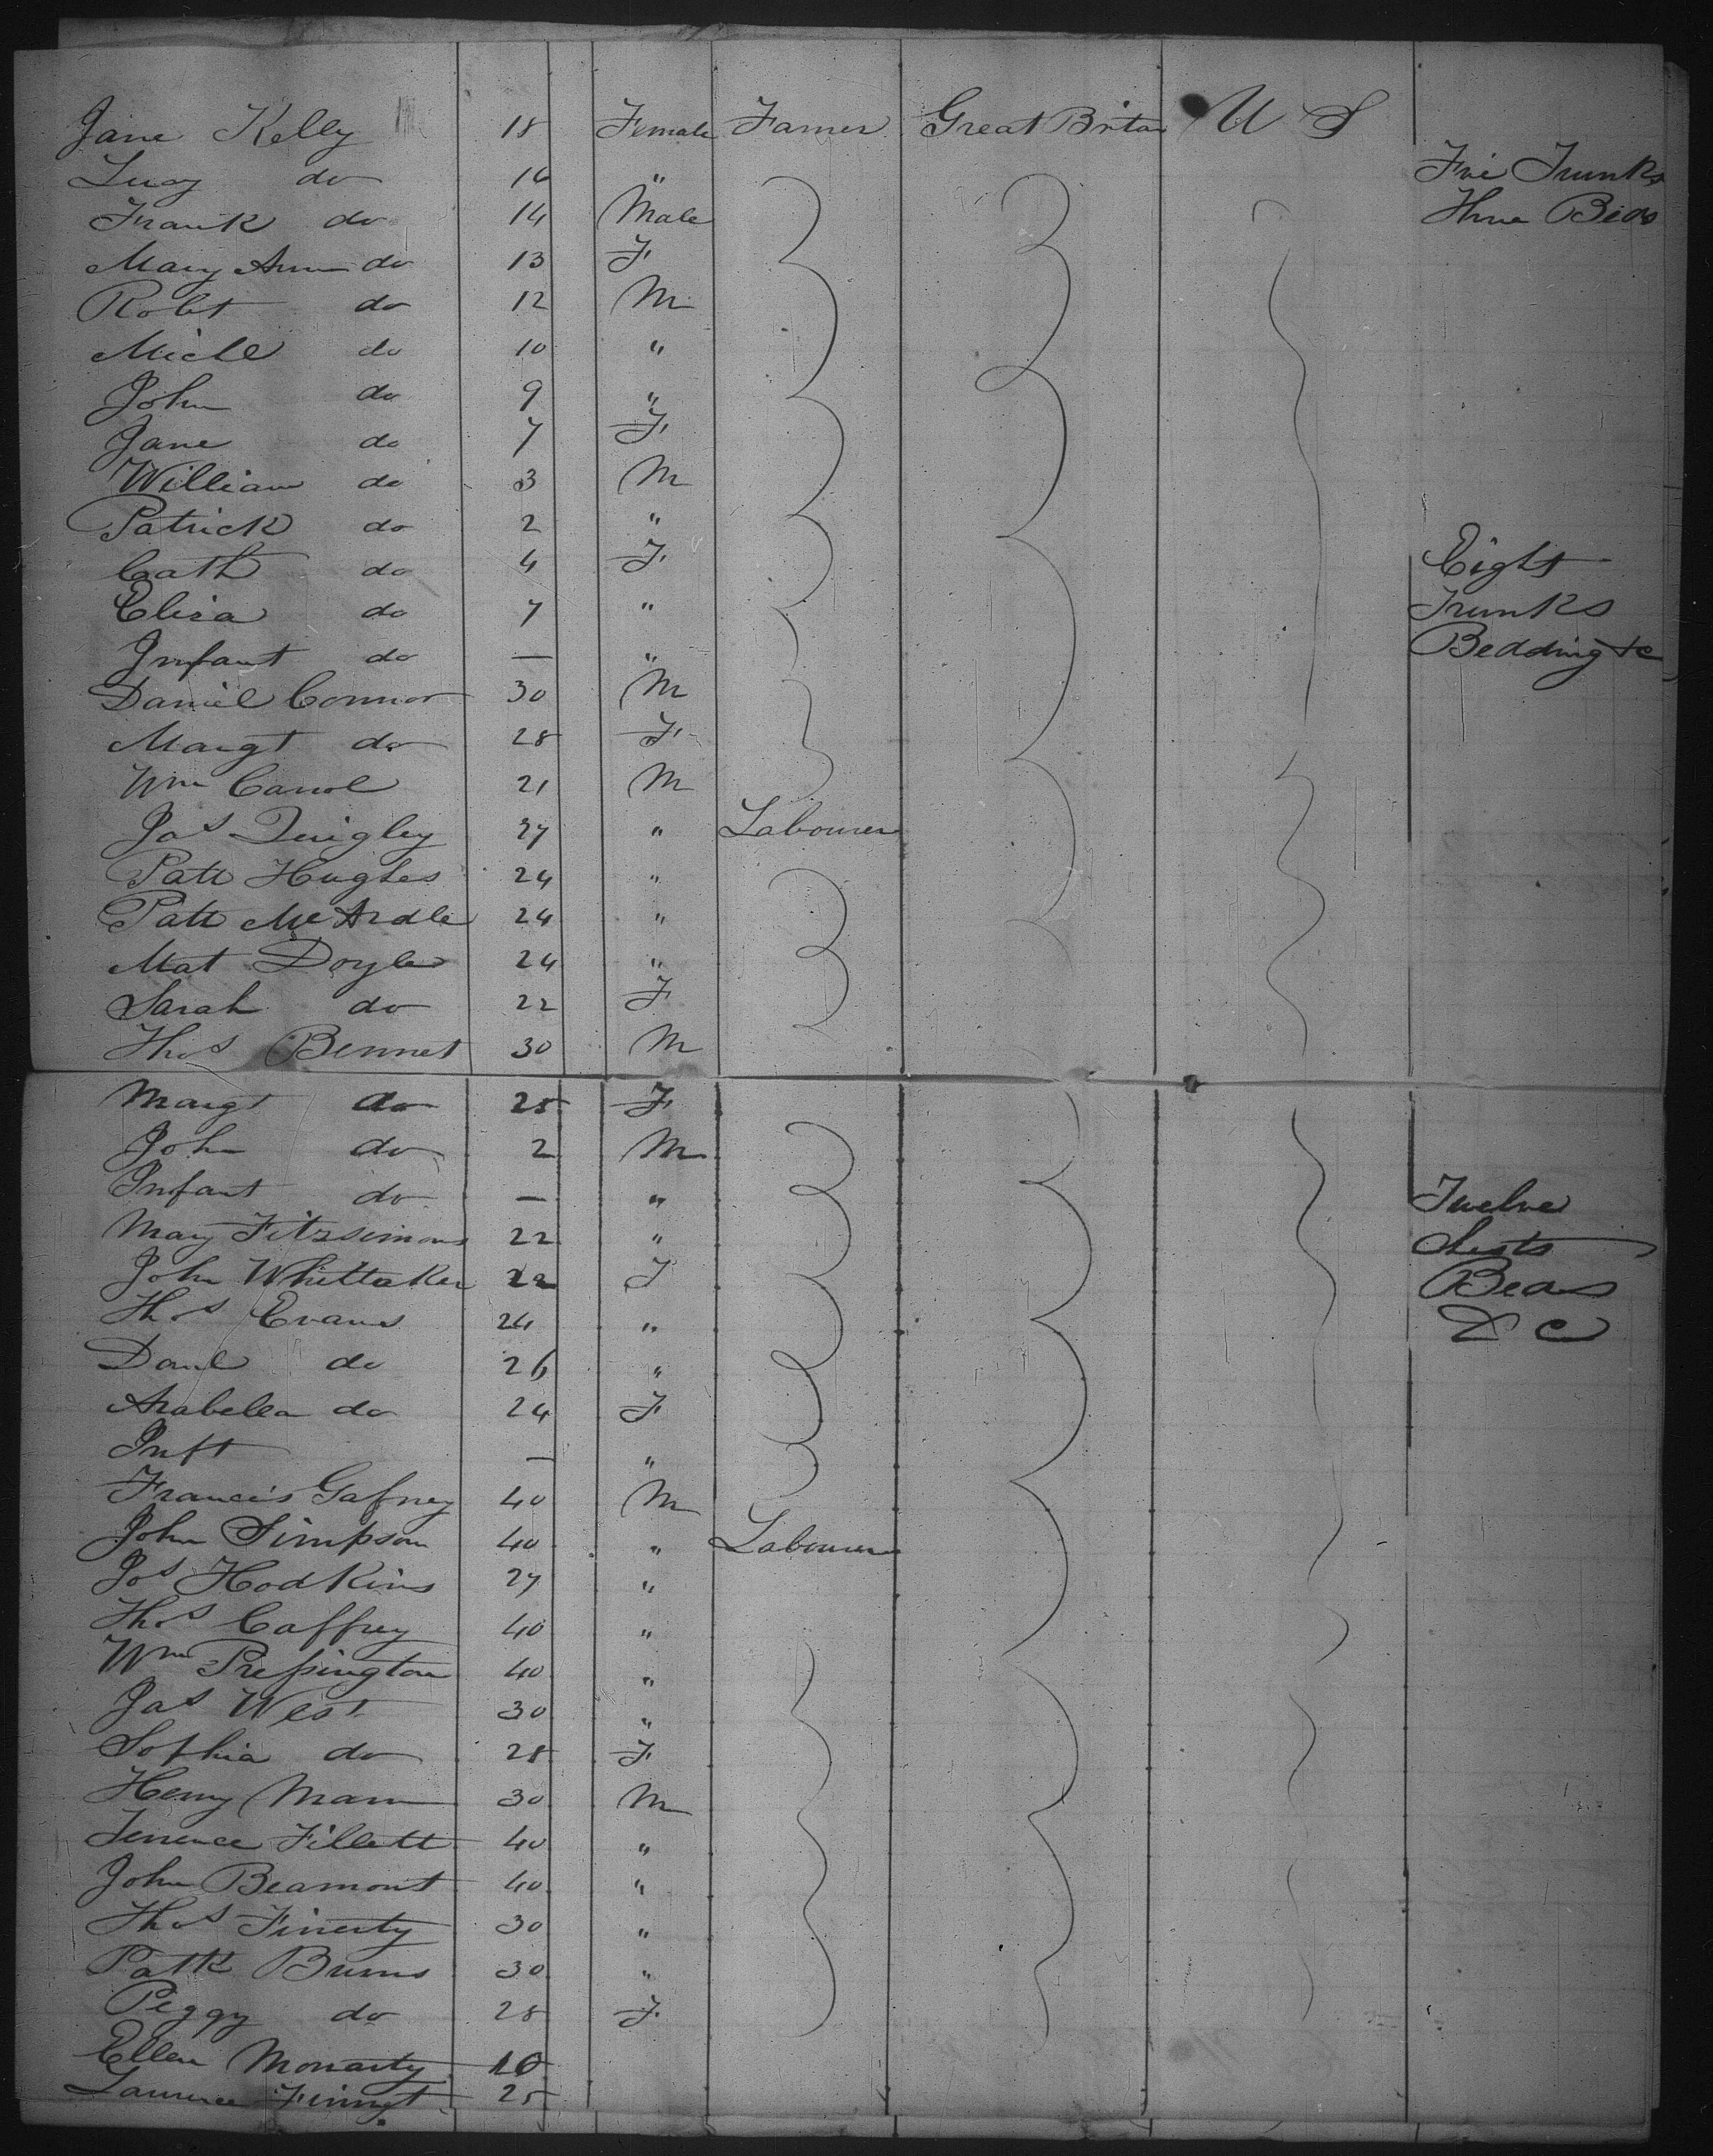 Jane Kelly 18 Female Farmer Great Britan U S
Lucy do 16 "
Five Trunks
Frank do 14 Male
Three Beds
Mary Ann do 13 F
Robt do 12 M
Michl do 10 "
John do 9 "
Jane do 7 F
William do 3 M
Patrick do 2 "
Cath do 4 F
Eight
Eliza do 7 "
Trunks
Infant do — "
Bedding &c
Daniel Connor 30 M
Margt do 28 F
Wm Carrol 21 M
Jas Quigley 27 " Labourer
Patt Hughes 24 "
Patt McArdle 24 "
Mat Doyle 24 "
Sarah do 22 F
Thos Bennet 30 M
Margt do 25 F
John do 2 M
Infant do — "
Twelve
Mary Fitzsimons 22 "
Chests
John Whittaker 22 F
Beds
Thos Evans 24 "
& c
Danl do 26 "
Arabella do 24 F
Inft — "
Francis Gafney 40 M
John Simpson 40 " Labourer
Jos Hodkins 27 "
Thos Caffrey 40 "
Wm Pressington 40 "
Jas West 30 "
Sophia do 28 F
Henry Mann 30 M
Terrence Fillett 40 "
John Beamont 40 "
Thos Finerty 30 "
Patk Burns 30 "
Peggy do 28 F
Ellen Moriarty 16
Laurence 25